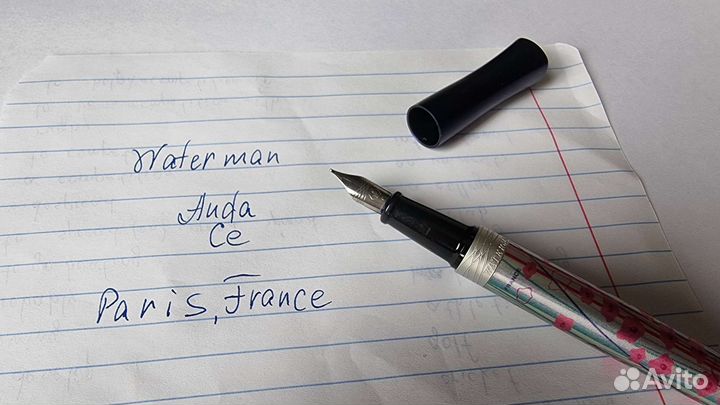 Waterman
Auda
Ce
Paris, France
Avito